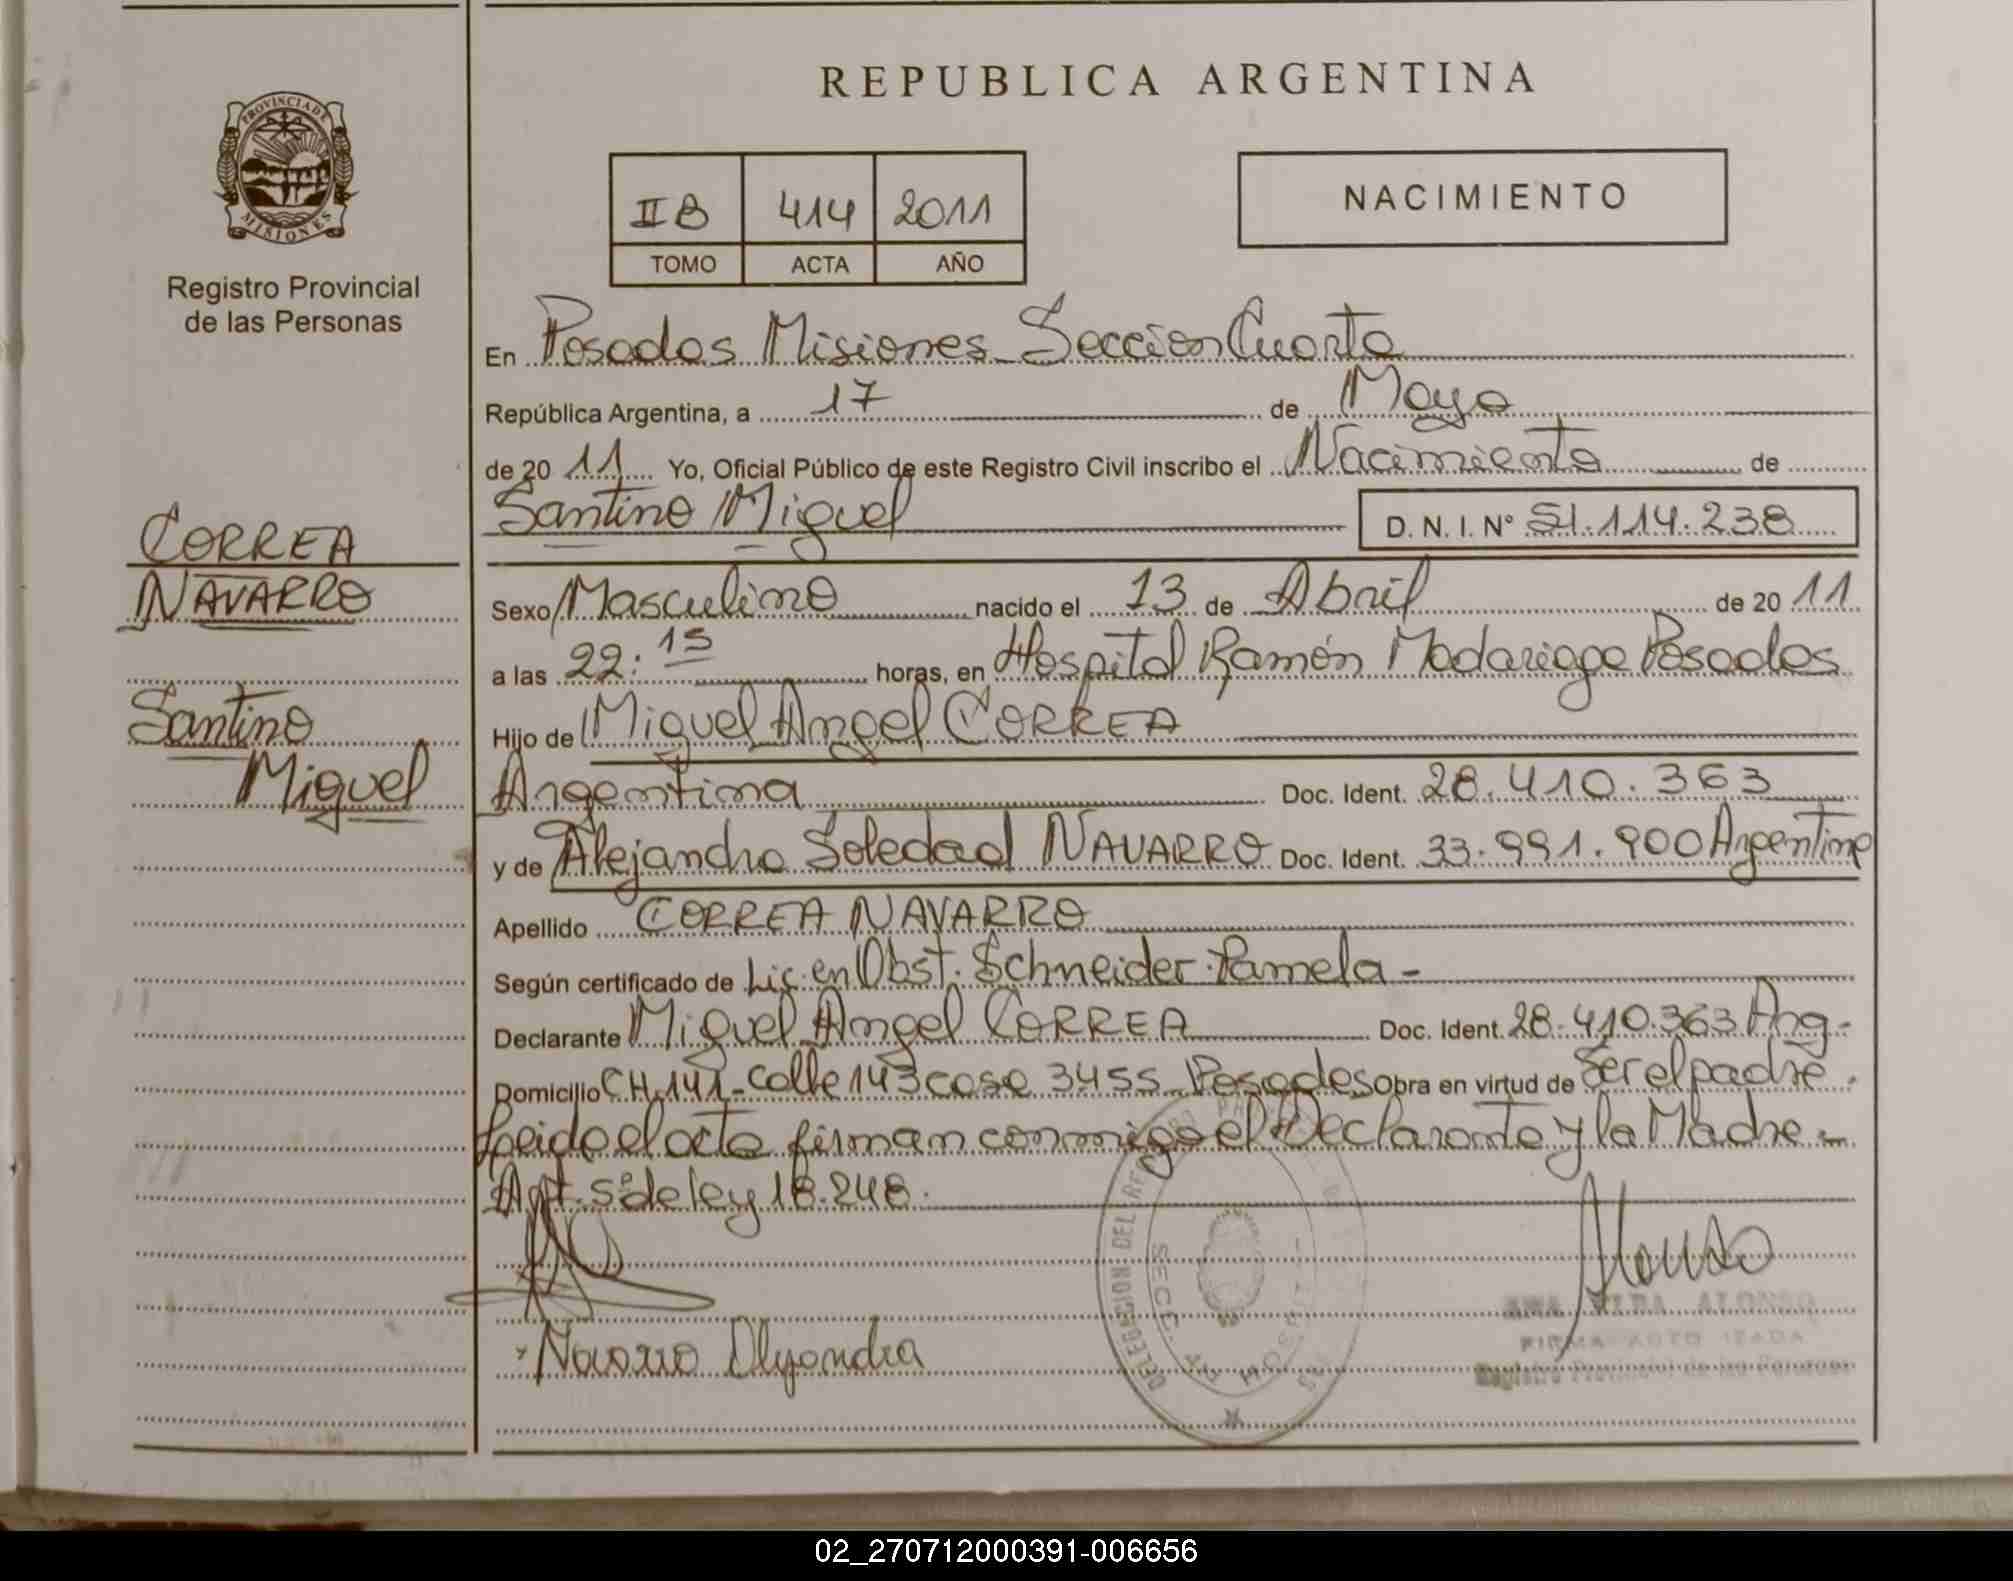 REPUBLICA ARGENTINA
PROVINCIA DE
MISIONES
Registro Provincial
de las Personas
II B 414 2011
TOMO ACTA AÑO
NACIMIENTO
En Posadas Misiones Seccion Cuarta
República Argentina, a 17 de Mayo
de 20 11 Yo, Oficial Público de este Registro Civil inscribo el Nacimiento de
Santino Miguel D. N. I. N° 51.114.238
CORREA
NAVARRO
Santino
Miguel
Sexo Masculino nacido el 13 de Abril de 20 11
a las 22:15 horas, en Hospital Ramón Madariaga Posadas
Hijo de Miguel Angel CORREA
Argentina Doc. Ident. 28.410.363
y de Alejandra Soledad NAVARRO Doc. Ident. 33.991.900 Argentina
Apellido CORREA NAVARRO
Según certificado de Lic. en Obst. Schneider Pamela -
Declarante Miguel Angel CORREA Doc. Ident. 28.410.363 Arg-
Domicilio CH.141- Calle 143 casa 3455 Posadas Obra en virtud de Ser el padre.
Leida el acta firman conmigo el Declarante y la Madre -
Art. 5° de ley 18.248.
Navarro Alejandra
DELEGACION DEL
SECC.
ALONSO
FIRMA AUTORIZADA
Registro Provincial de las Personas
02_270712000391-006656